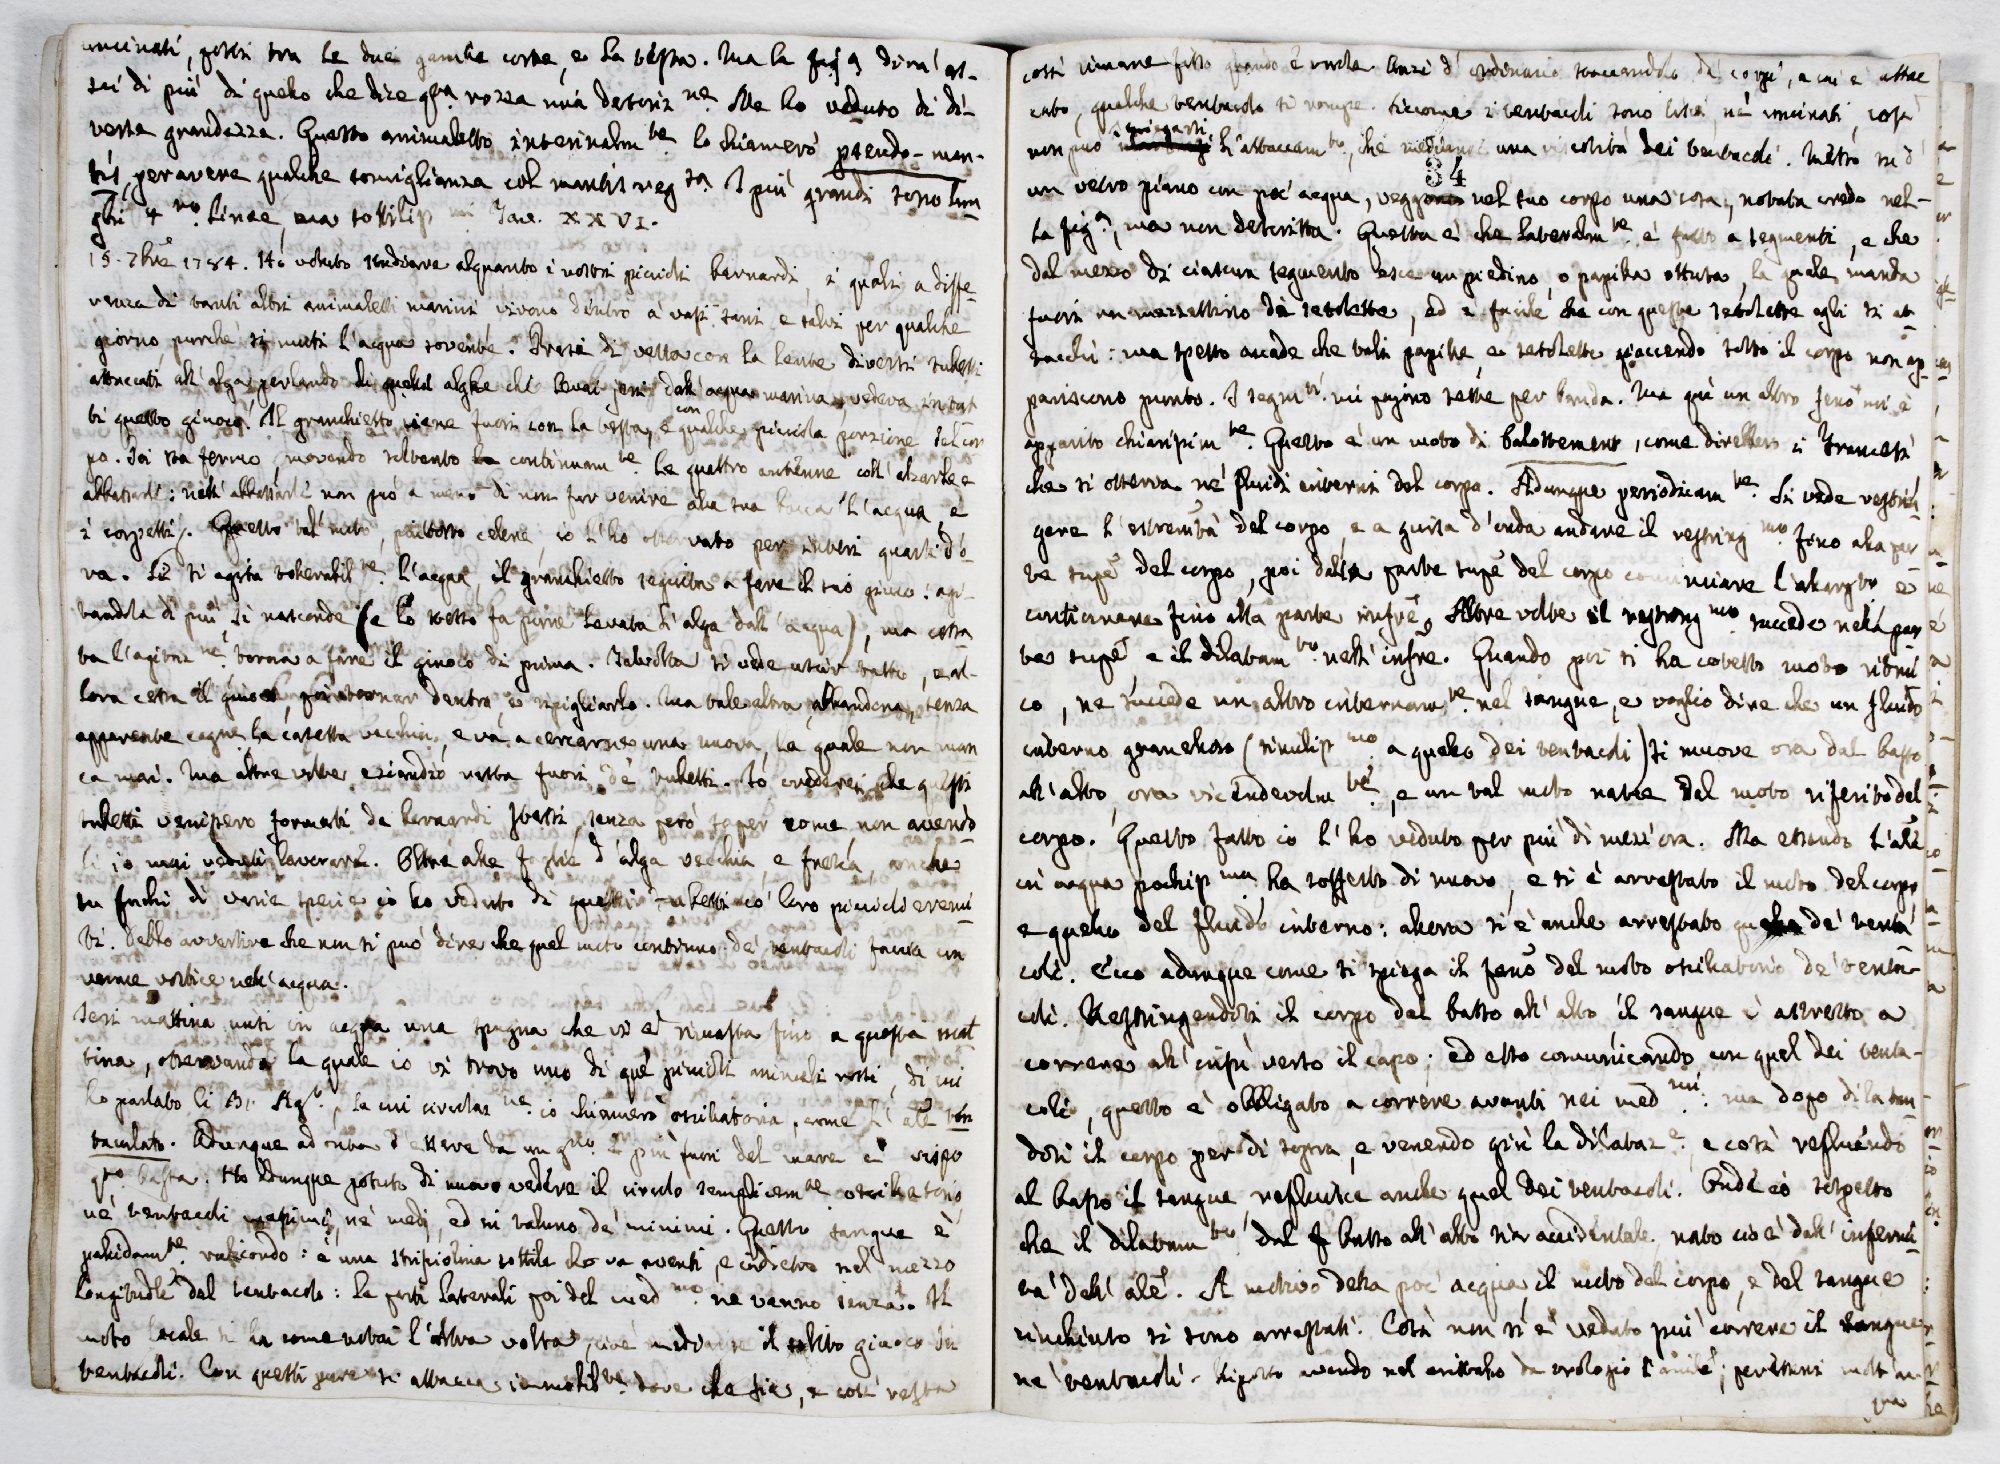 uncinati, posti tra le due gambe corte, e la testa. Ma la fig.ª dirà as-
sai di più di quello che dice q.ta rozza mia descriz.ne. Ne ho veduto di di-
verse grandezze. Questo animaletto interinalm.te lo chiamerò pseudo-man-
tis, per avere qualche somiglianza col mantis I più grandi sono lun
ghi 4.ro linee, ma sottiliss.mi Tav. XXVI.
15. 7bre 1784. Hò voluto studiare alquanto i nostri piccioli bernardi, i quali a diffe-
renza di tanti altri animaletti marini vivono dentro a vasi sani, e salvi per qualche
giorno, purché si muti l'acqua sovente. Presi di vista con la lente diversi tubetti
attaccati all'alga, parlando di quelle alghe che levai jeri dall'acqua marina, vedeva in tut
ti questo giuoco. Il granchietto viene fuori con la testa, e con qualche picciola porzione del cor
po. Poi sta fermo, movendo soltanto continuam.te le quattro antenne coll'alzarle e
abbassarle: nell'abbassarle non può a meno di non far venire alla sua bocca l'acqua, e
i corpetti. Questo tal moto, piuttosto celere, io l'ho osservato per interi quarti d'o
ra. Se si agita l'acqua, il granchietto seguita a fare il suo giuoco: agi-
tandola di più si nasconde (e lo stesso fa purre levata l'alga dall'acqua), ma cessa
ta l'agitaz.ne torna a fare il giuoco di prima. Talvolta si vede uscir tutto, e al-
lora cessa il giuoco, per tornar dentro e ripigliarlo. Ma tale altra abbandona, senza
apparente cagne. la casetta vecchia, e va a cercarne una nuova, la quale non man
ca mai. Ma altre volte eziandio resta fuori de' tubetti. Io crederei che questi
tubetti venissero formati da bernardi stessi, senza però saper come non avendo
li io mai veduti lavorare. Oltre alle foglie d'alga vecchia, e fresca, anche
su fuchi di varie specie io ho veduto di questi tubetti co' loro piccioli eremi
ti. Debbo avvertire che non si può dire che quel moto continuo de' tentacoli faccia un
verme vortice nell'acqua.
Jeri mattina misi in acqua una spugna che vi è rimasta fino a questa mat
tina, osservando la quale io vi trovo uno di que' piccioli animali rossi, di cui
ho parlato li Ag.to, la cui circolaz.ne io chiamerò oscillatoria, come l' ten
tacolato. Adunque ad onta d'essere da un g.no e più fuori del mare è vispo
q.to basta. Ho adunque potuto di nuovo vedere il circolo semplicem.te oscillatorio
ne' tentacoli massimi, ne' medj, ed in taluno de' minimi. Questo sangue è
pallidam.te rubicondo: è una strisciolina sottile che va avanti, e indietro nel mezzo
longitudle. del tentacolo: le parti laterali poi del med.mo ne vanno senza. Il
moto locale si ha come notai l'altra volta, cioè mediante il solito giuoco dei
tentacoli. Con questi pure si attacca immobilte. dove che sia, e così resta
così rimane fisso quando e' vuole. Anzi d'ordinario staccandolo da' corpi, a cui è attac
cato, qualche tentacolo si rompe. Siccome i tentacoli sono lisci, né uncinati, così
non può spiegarsi l'attaccam.to, che una viscosità dei tentacoli. Messo in
34
un vetro piano con poc'acqua, veggo nel suo corpo una cosa, notata credo nel-
la fig.ª, ma non descritta. Questa è che lateralm.te è fatto a segmenti, e che
dal mezzo di ciascun segmento esce un piedino, o papilla ottusa, la quale manda
fuori un mazzettino di setolette, ed è facile che con queste setolette egli si at
tacchi: ma spesso accade che tali papille e setolette giacendo sotto il corpo non ap-
pariscono punto. I segm.ti mi pajono sette per banda. Ma qui un altro fenō mi è
apparito chiarissim.te Questo è un moto di balottement, come direbbero i Francesi
che si osserva ne' fluidi interni del corpo. Adunque periodicam.te si vede restrin
gere l'estremità del corpo, e a guisa d'onda andare il restring.mo fino alla par
te supē del corpo, poi dalla parte supē del corpo cominciare l'allargto e
continuare fino alla parte infrē. Altre volte il restring.mo succede nella par
te supē, e il dilatam.to nell'infre. Quando poi si ha cotesto moto
co, ne succede un altro internam.te nel sangue, e voglio dire che un fluido
interno granelloso (similiss.mo a quello dei tentacoli) si muove ora dal basso
all'alto, ora vicendevolm.te, e un tal moto nasce dal moto riferito del
corpo. Questo fatto io l'ho veduto per più di mezz'ora. Ma essendo l'alē
in acqua pochiss.ma ha sofferto di nuovo, e si è arrestato il moto del corpo
e quello del fluido interno: allora si è anche arrestato quello de' tentá
coli. Ecco adunque come si spiega il fenō del moto oscillatorio de' tenta-
coli. Restringendosi il corpo dal basso all'alto il sangue è astretto a
correre all'insù verso il capo; ed esso comunicando con quel dei tenta-
coli, questo è obbligato a correre avanti nei med.mi: ma dopo dilatan-
dosi il corpo per di sopra, e venendo giù la dilataz.e, e così refluendo
al basso il sangue, refluisce anche quel dei tentacoli. Onde io sospetto
che il dilatam.to dal basso all'alto sia accidentale, nato cioè dall'infermi-
tà dell'alē. A motivo della poc'acqua il moto del corpo, e del sangue
rinchiuso si sono arrestati. Così non si è veduto più correre il sangue
ne' tentacoli. Riposto avendo nel cristallo da orologio l' anilē; per essersi
qua